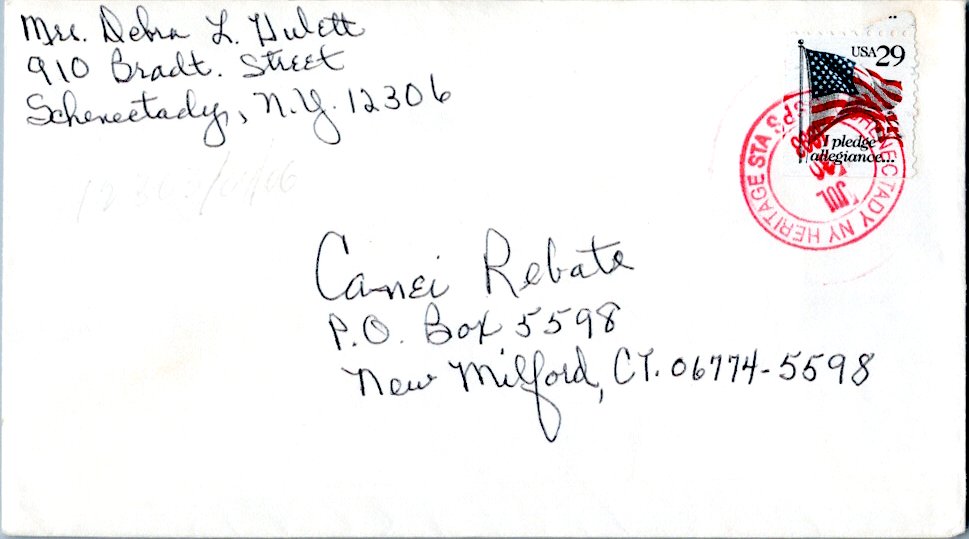 Mrs. Debra L. Hulett
910 Bradt. Street
Schenectady, N.Y. 12306
USA 29
I pledge
allegiance...
SCHENECTADY NY HERITAGE STA USPS
JUL
Camei Rebate
P.O. Box 5598
New Milford, CT. 06774-5598